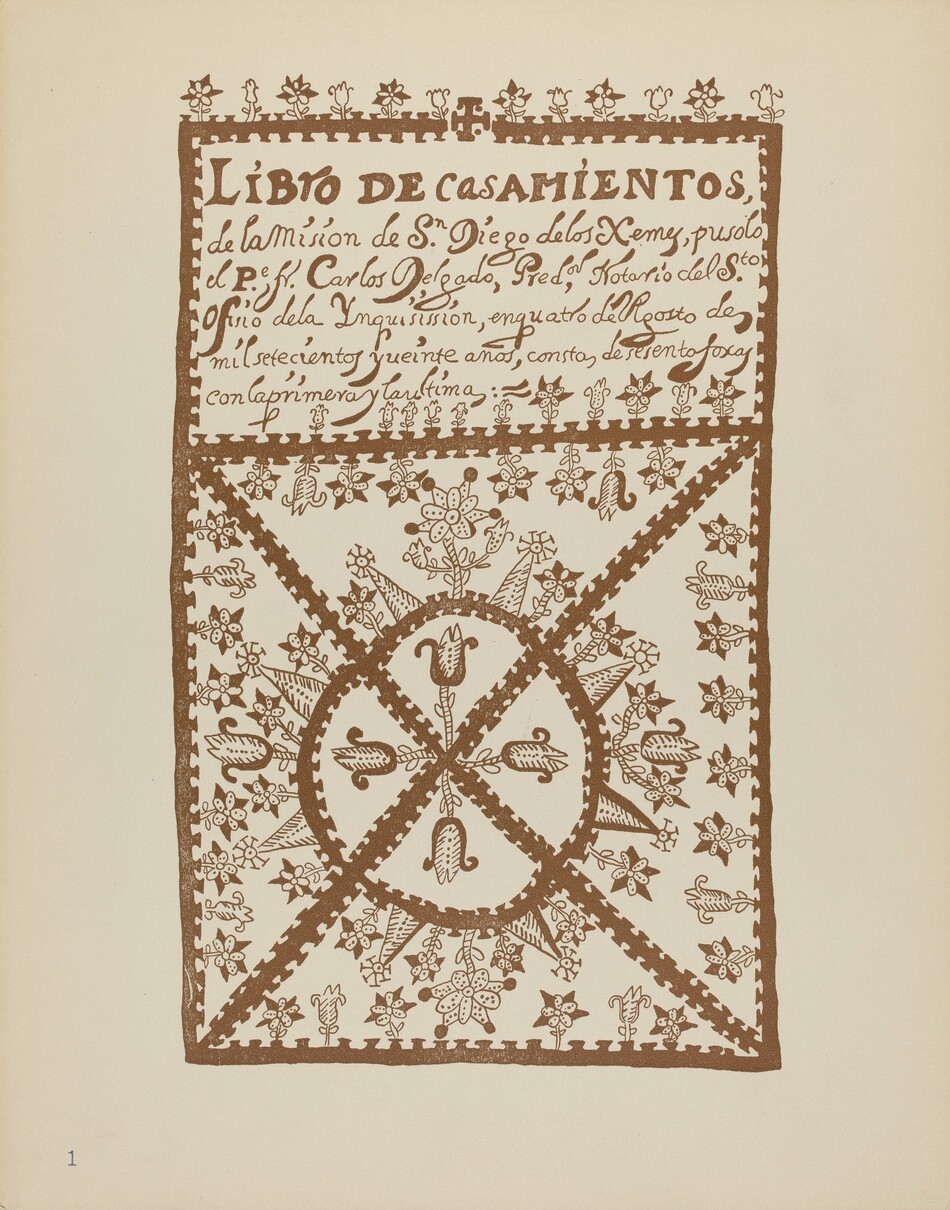 LiBro DE CasAMiENTOS,
de la Mision de S.n Diego delos Xemes, pusolo
el P.e fr. Carlos Delgado, Pred.or Notario del S.to
Ofisio dela Ynquisission, enquatro de Agosto de
mil setecientos yueinte años, consta, de sesenta foxas
con laprimera y laultima,:=
1